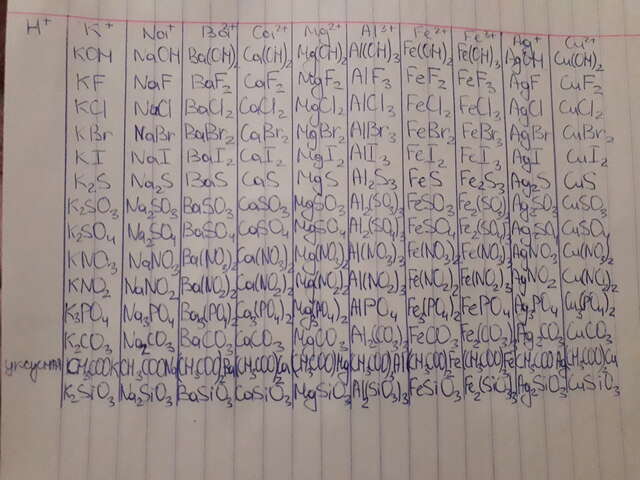 H⁺ K⁺ Na⁺ Ba²⁺ Ca²⁺ Mg²⁺ Al³⁺ Fe²⁺ Fe³⁺ Ag⁺ Cu²⁺
KOH NaOH Ba(OH)₂ Ca(OH)₂ Mg(OH)₂ Al(OH)₃ Fe(OH)₂ Fe(OH)₃ AgOH Cu(OH)₂
KF NaF BaF₂ CaF₂ MgF₂ AlF₃ FeF₂ FeF₃ AgF CuF₂
KCl NaCl BaCl₂ CaCl₂ MgCl₂ AlCl₃ FeCl₂ FeCl₃ AgCl CuCl₂
KBr NaBr BaBr₂ CaBr₂ MgBr₂ AlBr₃ FeBr₂ FeBr₃ AgBr CuBr₂
KI NaI BaI₂ CaI₂ MgI₂ AlI₃ FeI₂ FeI₃ AgI CuI₂
K₂S Na₂S BaS CaS MgS Al₂S₃ FeS Fe₂S₃ Ag₂S CuS
K₂SO₃ Na₂SO₃ BaSO₃ CaSO₃ MgSO₃ Al₂(SO₃)₃ FeSO₃ Fe₂(SO₃)₃ Ag₂SO₃ CuSO₃
K₂SO₄ Na₂SO₄ BaSO₄ CaSO₄ MgSO₄ Al₂(SO₄)₃ FeSO₄ Fe₂(SO₄)₃ Ag₂SO₄ CuSO₄
KNO₃ NaNO₃ Ba(NO₃)₂ Ca(NO₃)₂ Mg(NO₃)₂ Al(NO₃)₃ Fe(NO₃)₂ Fe(NO₃)₃ AgNO₃ Cu(NO₃)₂
KNO₂ NaNO₂ Ba(NO₂)₂ Ca(NO₂)₂ Mg(NO₂)₂ Al(NO₂)₃ Fe(NO₂)₂ Fe(NO₂)₃ AgNO₂ Cu(NO₂)₂
K₃PO₄ Na₃PO₄ Ba₃(PO₄)₂ Ca₃(PO₄)₂ Mg₃(PO₄)₂ AlPO₄ Fe₃(PO₄)₂ FePO₄ Ag₃PO₄ Cu₃(PO₄)₂
K₂CO₃ Na₂CO₃ BaCO₃ CaCO₃ MgCO₃ Al₂(CO₃)₃ FeCO₃ Fe₂(CO₃)₃ Ag₂CO₃ CuCO₃
CH₃COOK CH₃COONa (CH₃COO)₂Ba (CH₃COO)₂Ca (CH₃COO)₂Mg (CH₃COO)₃Al (CH₃COO)₂Fe (CH₃COO)₃Fe CH₃COOAg (CH₃COO)₂Cu
K₂SiO₃ Na₂SiO₃ BaSiO₃ CaSiO₃ MgSiO₃ Al₂(SiO₃)₃ FeSiO₃ Fe₂(SiO₃)₃ Ag₂SiO₃ CuSiO₃